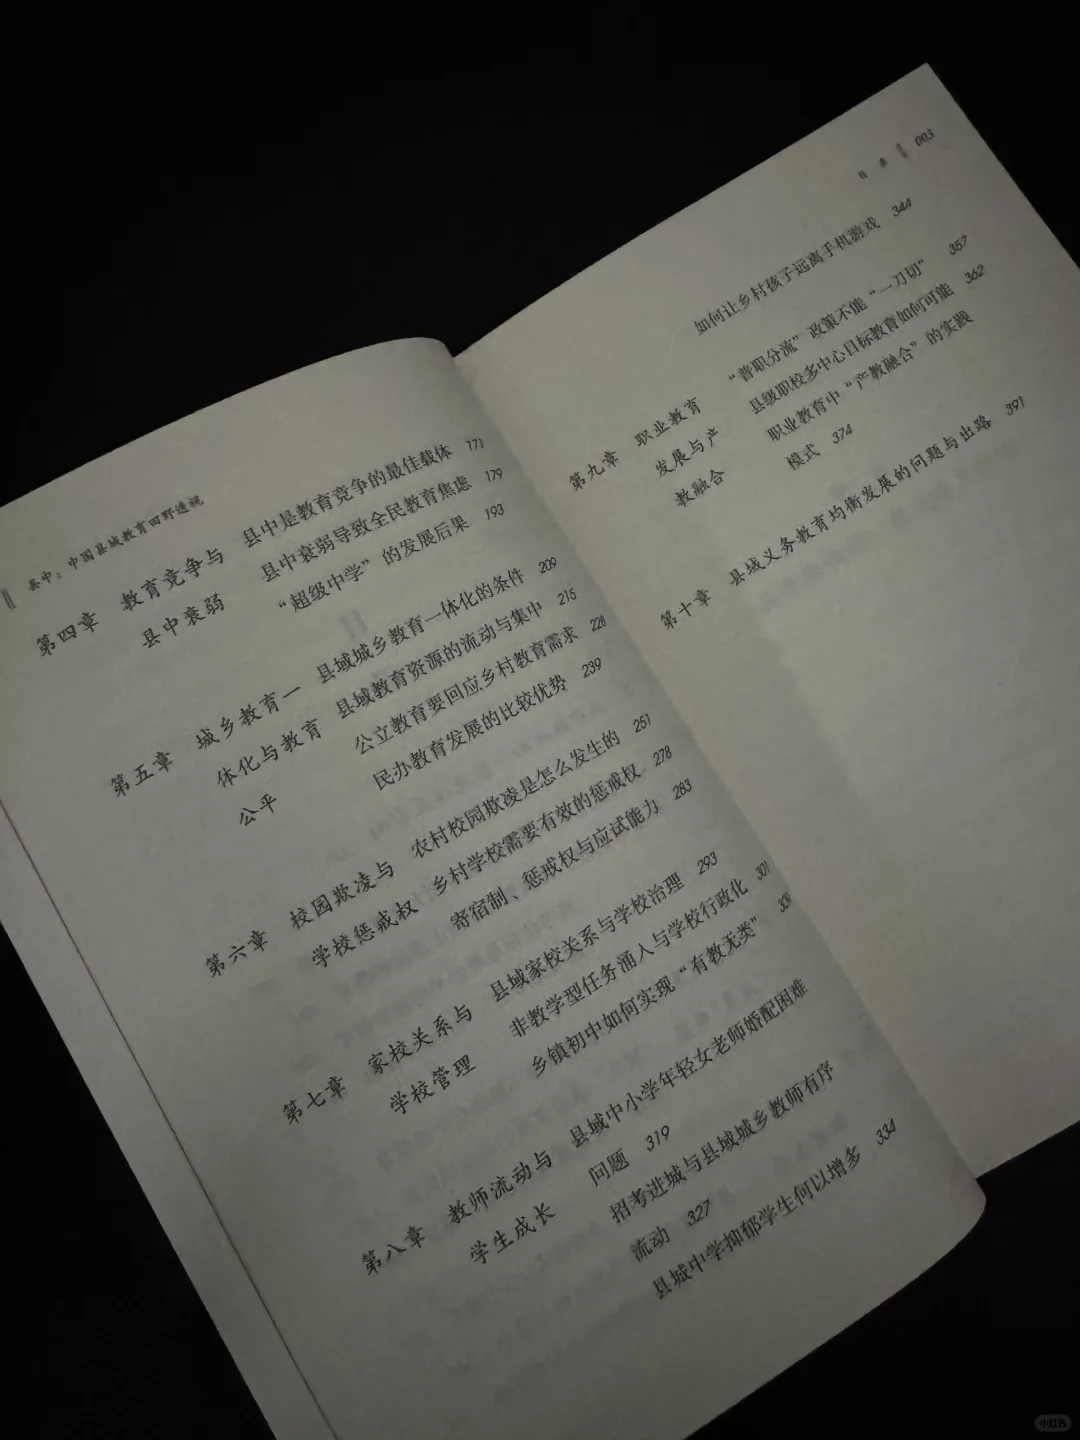 县中：中国县域教育田野透视
第四章 教育竞争与 县中是教育竞争的最佳载体 171
县中衰弱 县中衰弱导致全民教育焦虑 179
“超级中学”的发展后果 193
第五章 城乡教育一 县域城乡教育一体化的条件 209
体化与教育 县域教育资源的流动与集中 215
公平 公立教育要回应乡村教育需求 228
民办教育发展的比较优势 239
第六章 校园欺凌与 农村校园欺凌是怎么发生的 251
学校惩戒权 乡村学校需要有效的惩戒权 278
寄宿制、惩戒权与应试能力 283
第七章 家校关系与 县域家校关系与学校治理 293
学校管理 非教学型任务涌入与学校行政化 301
乡镇初中如何实现“有教无类”
第八章 教师流动与 县域中小学年轻女老师婚配困难
学生成长 问题 319
招考进城与县域城乡教师有序
流动 327
县城中学抑郁学生何以增多 334
目录 003
如何让乡村孩子远离手机游戏 344
第九章 职业教育 “普职分流”政策不能“一刀切” 357
发展与产 县级职校多中心目标教育如何可能 362
教融合 职业教育中“产教融合”的实践
模式 374
第十章 县域义务教育均衡发展的问题与出路 391
小红书